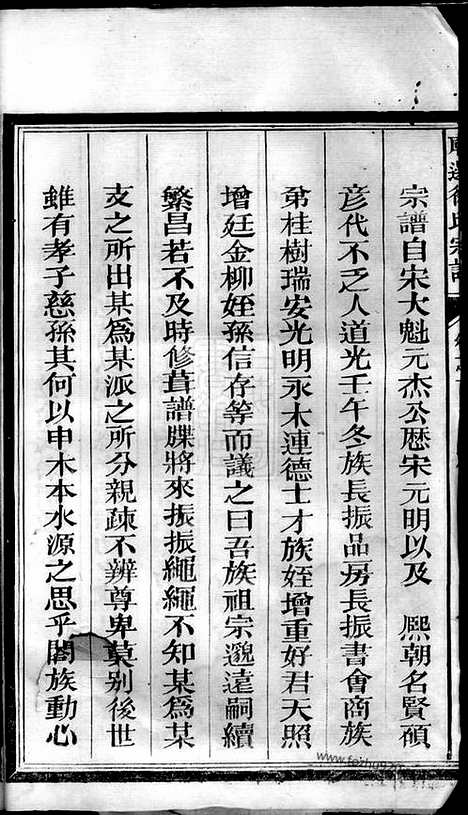 宗譜自宋大魁元杰公歷宋元明以及　熙朝名賢碩
彥代不乏人道光壬午冬族長振品房長振書會商族
弟桂樹瑞安光明永木連德士才族姪增重好君天照
增廷金柳姪孫信存等而議之曰吾族祖宗邈遠嗣續
繁昌若不及時修葺譜牒將來振振繩繩不知某為某
支之所出某為某派之所分親疎不辨尊卑莫別後世
雖有孝子慈孫其何以申木本水源之思乎閤族動心